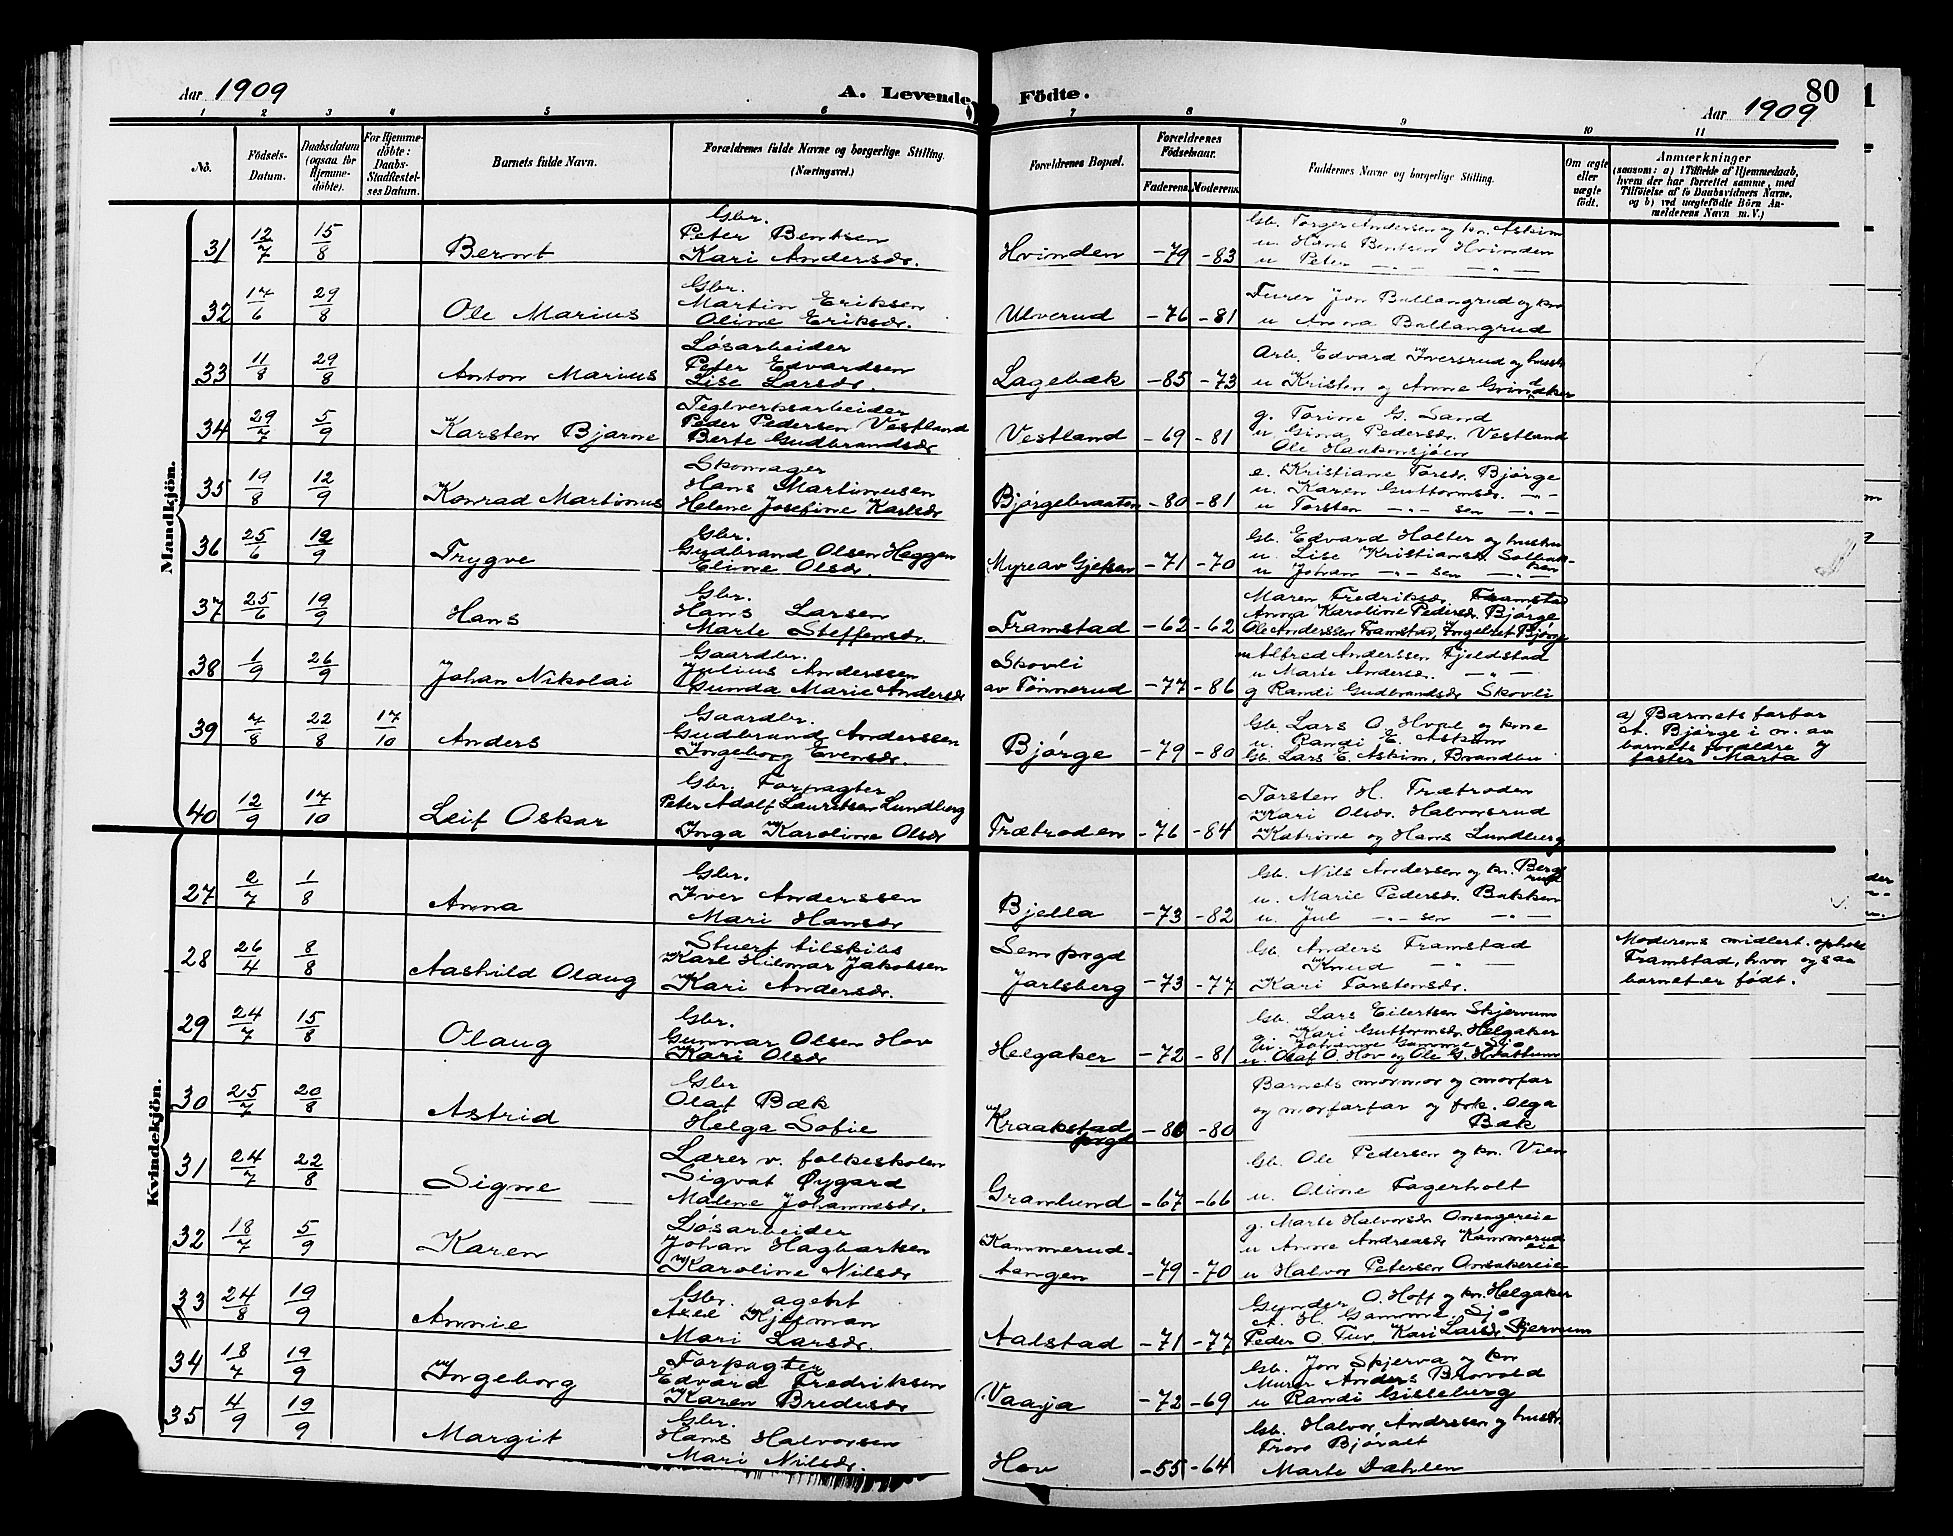 Aar 1909
A. Levende Födte.
80
Aar 1909
1 2 3 4 5 6 7 8 9 10 11
No.
Födsels-Datum.
Daabsdatum (ogsaa for Hjemmedöbte).
For Hjemmedöbte: Daabs-Stadfestelses Datum.
Barnets fulde Navn.
Forældrenes fulde Navne og borgerlige Stilling. (Næringsvei.)
Forældrenes Bopæl.
Forældrenes Födselsaar.
Faderens. Moderens.
Faddernes Navne og borgerlige Stilling.
Om ægte eller uægte födt.
Anmærkninger
(saasom: a) i Tilfælde af Hjemmedaab, hvem der har forrettet samme, med Tilföielse af to Daabsvidners Navne. og b) ved uægtefödte Börn Anmelderens Navn m. V.)
Mandkjön.
31 12/7 15/8 Bernt
Gbr.
Peter Bentsen
Kari Andersdr.
Hvinden -79 -83
Gb. Torger Andersen og kn. Askim
u. Hans Bentsen Hvinden
u Peter -"- -"-
32 17/6 29/8 Ole Marius
Gbr.
Martin Eriksen
Oline Eriksdr.
Ulverud -76 -81
Furer Jon Ballangrud og kn
u Anna Ballangrud
33 11/8 29/8 Anton Marius
Løsarbeider
Peter Edvardsen
Lise Larsdr.
Lagebæk -85 -73
Arb. Edvard Iversrud og hustr
u Kristen og Anne Grindaker
34 29/7 5/9 Karsten Bjarne
Teglverksarbeider
Peder Pedersen Vestland
Berte Gudbrandsdr
Vestland -69 -81
g. Torine G. Sand
u Gina Pedersdr. Vestland
Ole Haakonsjøen
35 19/8 12/9 Konrad Martinus
Skomager
Hans Martinusen
Helene Josefine Karlsdr
Bjørgebraaten -80 -81
e. Kristiane Torsdr. Bjørge
u. Karen Guttormsdr. -"-
u Torsten -"- sen -"-
36 25/6 12/9 Trygve
Gbr.
Gudbrand Olsen Heggen
Eline Olsdr.
Myre av Gjefsen -71 -70
Gb. Edvard Holter og hustru
u. Lise Kristiansdr Solbakken
u Johan -"- sen -"-
37 25/6 19/9 Hans
Gbr.
Hans Larsen
Marte Steffensdr.
Framstad -62 -62
Maren Fredriksdr. Framstad
Anna Karoline Pedersdr. Bjørge
Ole Anderssen Framstad, Ingebret Bjørge
38 1/9 26/9 Johan Nikolai
Gaardbr.
Julius Anderssen
Gunda Marie Andersdr
Skovli
av Tømmerud -77 -86
Alfred Anderssen Fjeldstad
u Marie Andersdr. -"-
g Randi Gudbrandsdr Skovli
39 7/8 22/8 17/10 Anders
Gaardbr.
Gudbrand Anderssen
Ingeborg Evensdr.
Bjørge -79 -80
Gb. Lars O. Hval og kone
u. Randi E. Askim
Gb. Lars E. Askim, Brandbu
a) Barnets farfar
A. Bjørge i ov. av
barnets forældre og
faster Marta
40 12/9 17/10 Leif Oskar
Gbr. Forpagter
Peter Adolf Lauritsen Lundberg
Inga Karoline Olsdr
Trætroden -76 -84
Torsten H. Trætroden
Kari Olsdr. Halvorsrud
Katrine og Hans Lundberg
Kvindekjön.
27 2/7 1/8 Anna
Gbr.
Iver Anderssen
Mari Hansdr
Bjella -73 -82
Gb. Nils Andersen og kn. Bergsrud
u. Marie Pedersdr. Bakken
u. Jul -"- sen -"-
28 26/4 8/8 Aashild Olaug
Stuert tilskibs
Karl Hilmar Jakobsen
Kari Andersdr.
Sem prgd
Jarlsberg -73 -77
Gb Anders Framstad
Knud -"-
Kari Torstensdr.
Moderens midlert. ophold
Framstad, hvor ogsaa
barnet er født.
29 24/7 15/8 Olaug
Gbr.
Gunnar Olsen Hov
Kari Olsdr
Helgaker -72 -81
Gb. Lars Eilertsen Skjervum
Kari Guttormsdr Helgaker
Ei. Johanne Gamme Sjo
u. Olaf O. Hov og Ole G. Hvattum
30 25/7 20/8 Astrid
Gbr
Olaf Bæk
Helga Sofie
Kraakstad
prgd -80 -80
Barnets mormor og morfar
og morfarfar og frk. Olga
Bæk
31 24/7 22/8 Signe
Lærer v. folkeskolen
Sigvat Øygard
Malene Johannesdr.
Granlund -67 -66
Gb. Ole Pedersen og kn. Vien
u. Oline Fagerholt
32 18/7 5/9 Karen
Løsarbeider
Johan Hagbartsen
Karoline Nilsdr
Kammerud-
tangen -79 -70
g. Marte Halvorsdr Onsagereie
u Anne Andreasdr Kammerudeie
u Halvor Petersen Onsakereie
33 24/8 19/9 Annie
Gbr. agent
Axel Kjelman
Mari Larsdr.
Aalstad -71 -77
Gunder O. Hoff og kn. Helgaker
A. H. Gamme, Sjo
Peder O. Tuv, Kari Larsdr Skjervum
34 18/7 19/9 Ingeborg
Forpagter
Edvard Fredriksen
Karen Bredesdr
Vaarja -72 -69
Gb. Jon Skjerva og kn
Murer Anders Brovold
u Randi Gisleberg
35 4/9 19/9 Margit
Gbr.
Hans Halvorsen
Mari Nilsdr.
Hov -55 -64
Gb. Halvor Andresen og hustr.
Tron Bjøralt
Marte Dæhlen